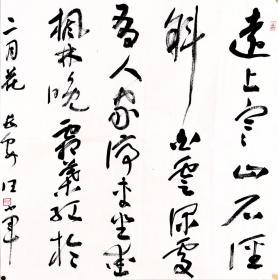 遠上寒山石徑
斜白雲深處
有人家停車坐愛
楓林晚霜葉紅於
二月花